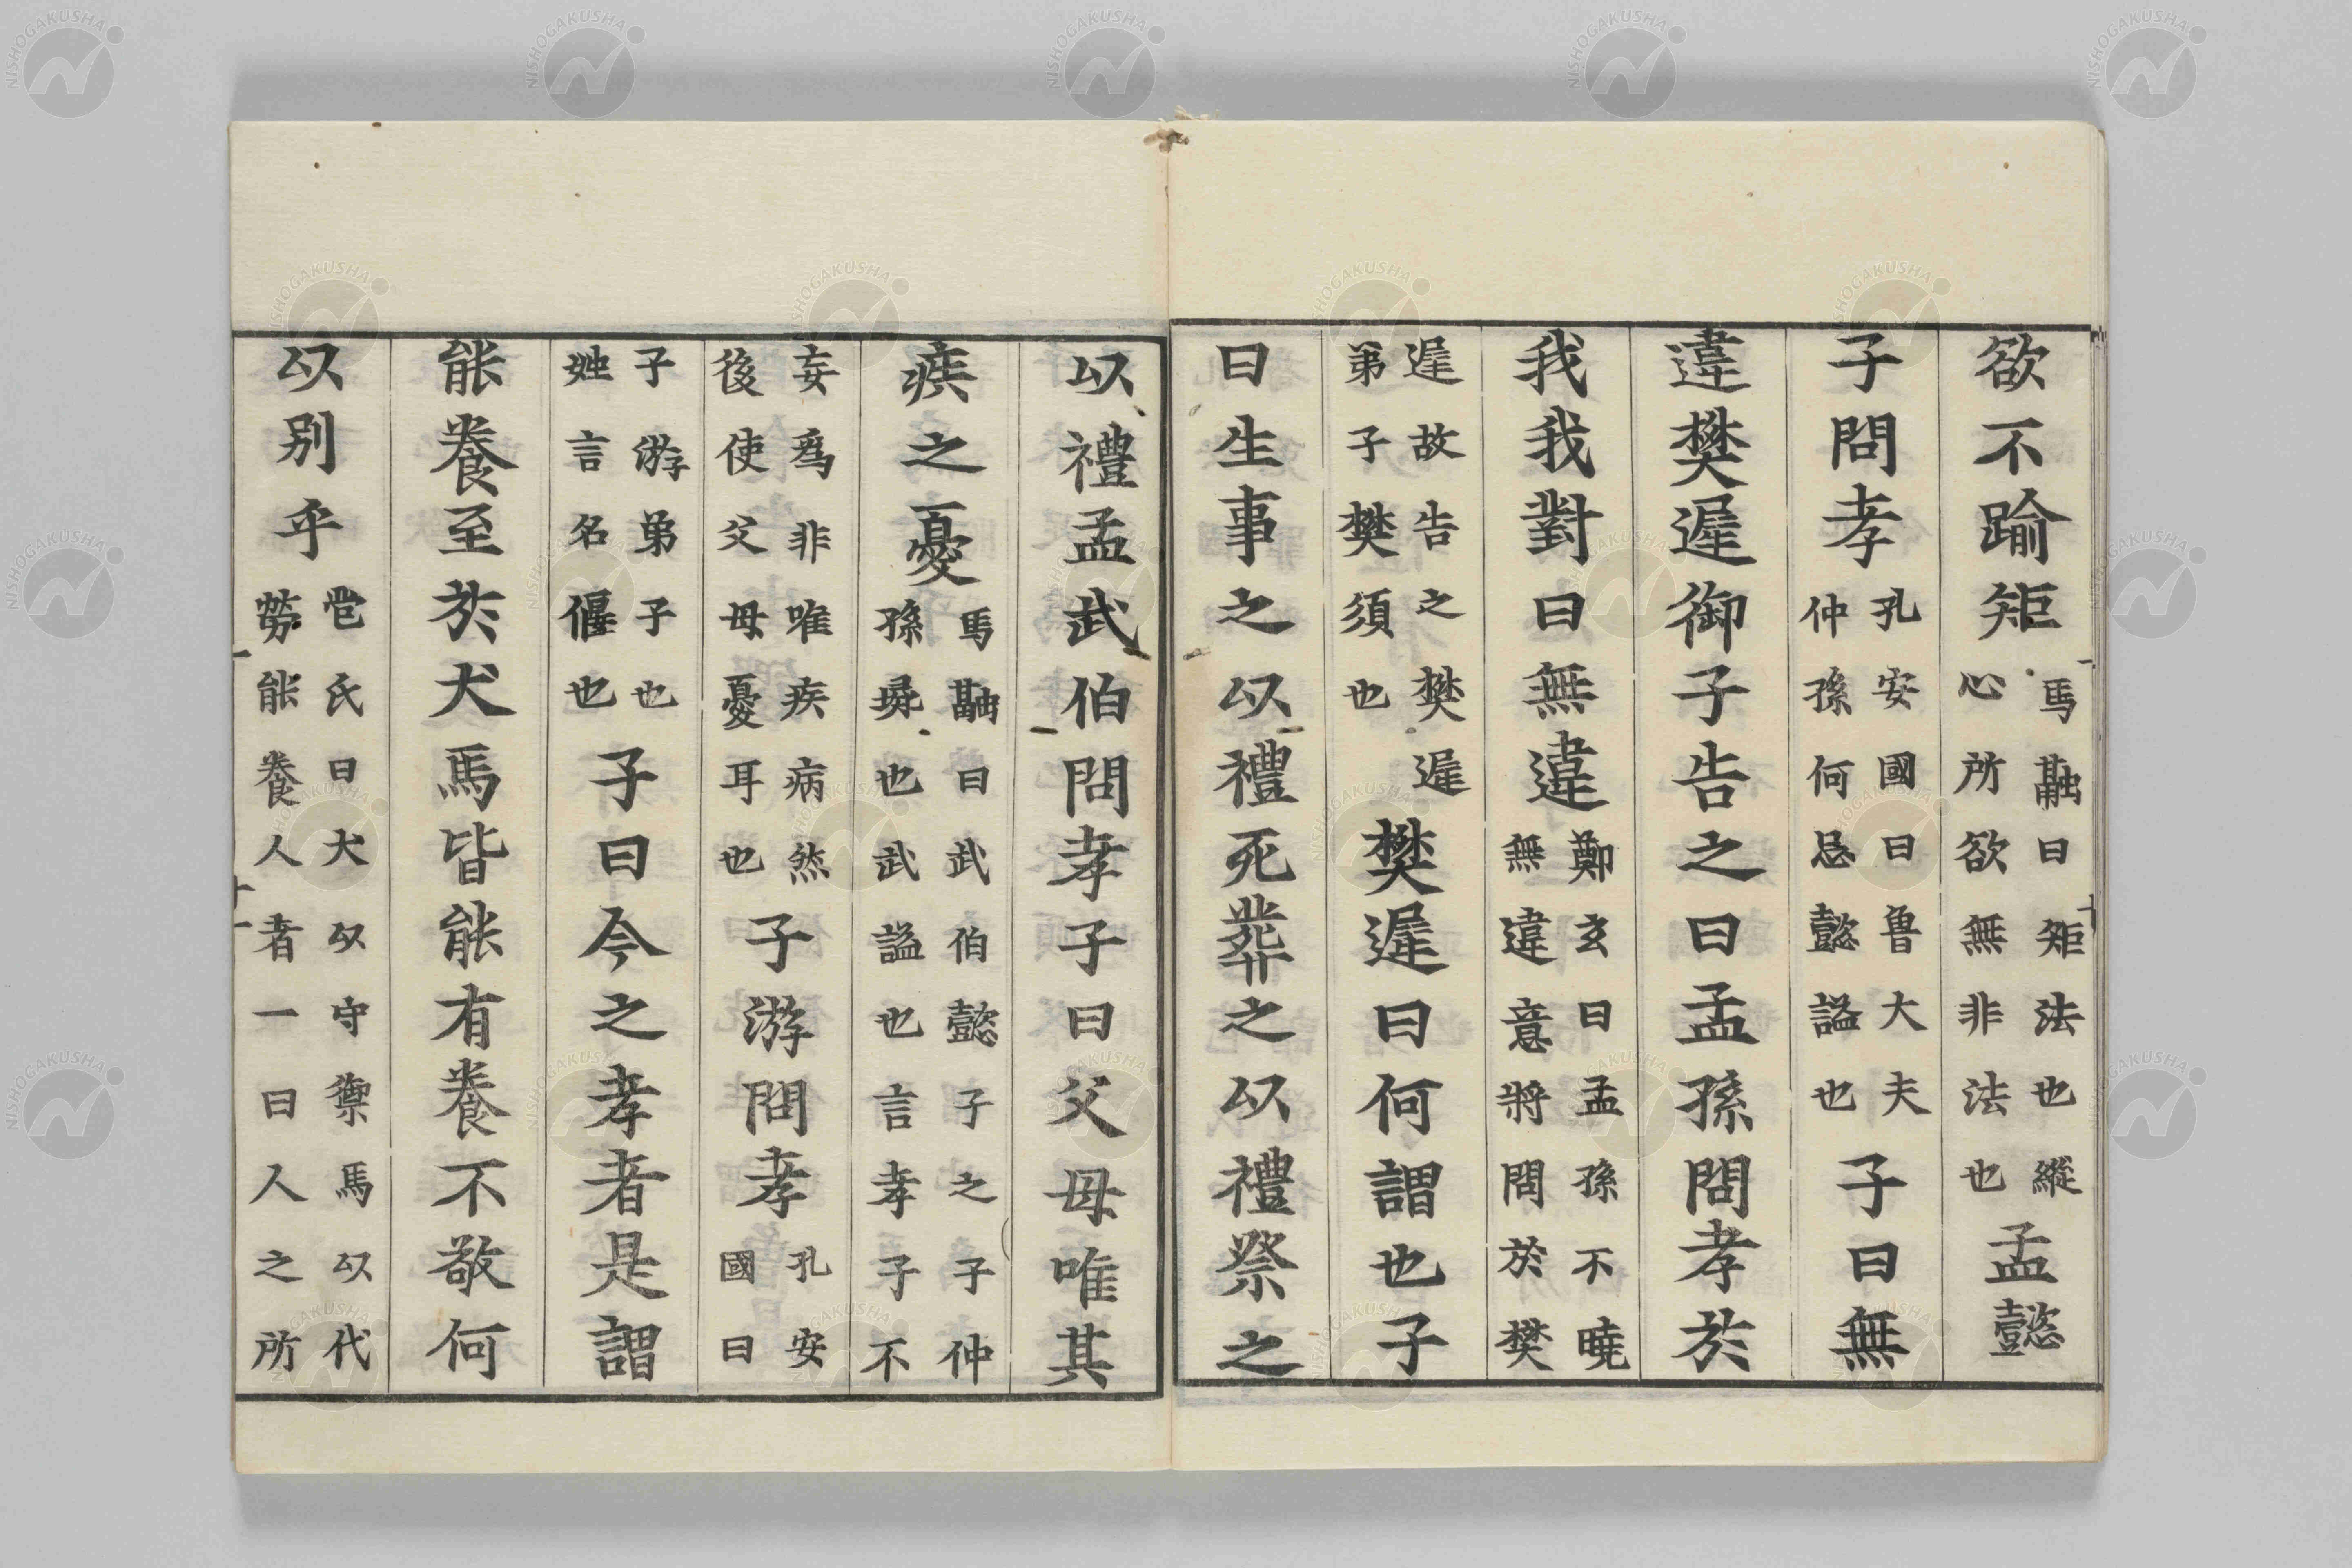 欲不踰矩馬融曰矩法也縱心所欲無非法也孟懿
子問孝孔安國曰魯大夫仲孫何忌懿謚也子曰無
違樊遲御子告之曰孟孫問孝於
我我對曰無違鄭玄曰孟孫不曉無違意將問於樊
遲故告之樊遲弟子樊須也樊遲曰何謂也子
曰生事之以禮死葬之以禮祭之
以禮孟武伯問孝子曰父母唯其
疾之憂馬融曰武伯懿子之子仲孫彘也武謚也言孝子不
妄爲非唯疾病然後使父母憂耳也子游問孝孔安國曰
子游弟子也姓言名偃也子曰今之孝者是謂
能養至於犬馬皆能有養不敬何
以別乎苞氏曰犬以守禦馬以代勞能養人者一曰人之所
NISHOGAKUSHA